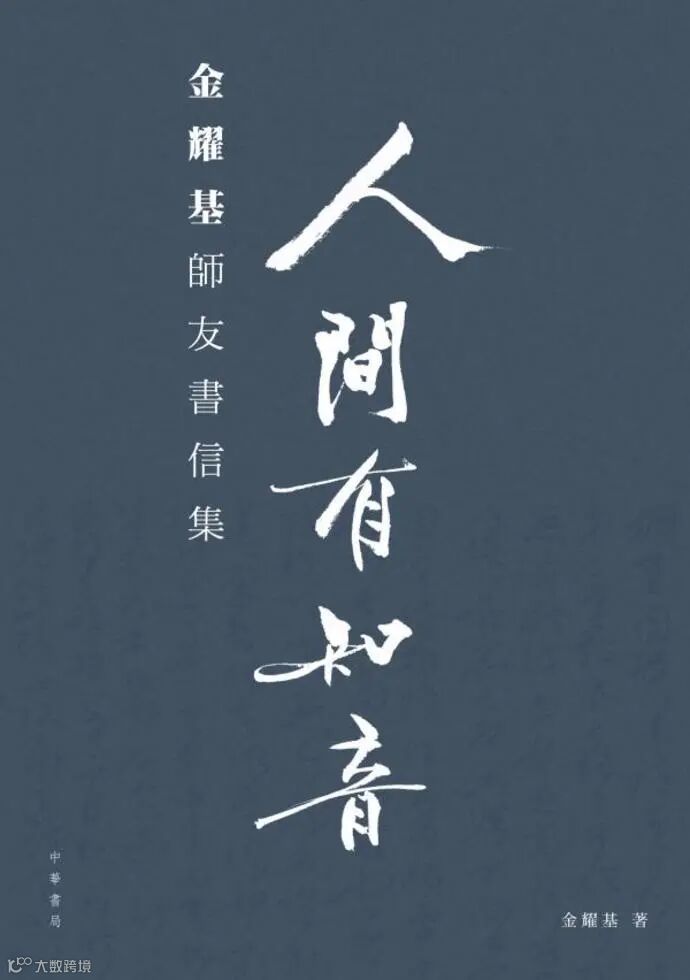 人間有知音
金耀基師友書信集
中華書局
金耀基 著
大数跨境